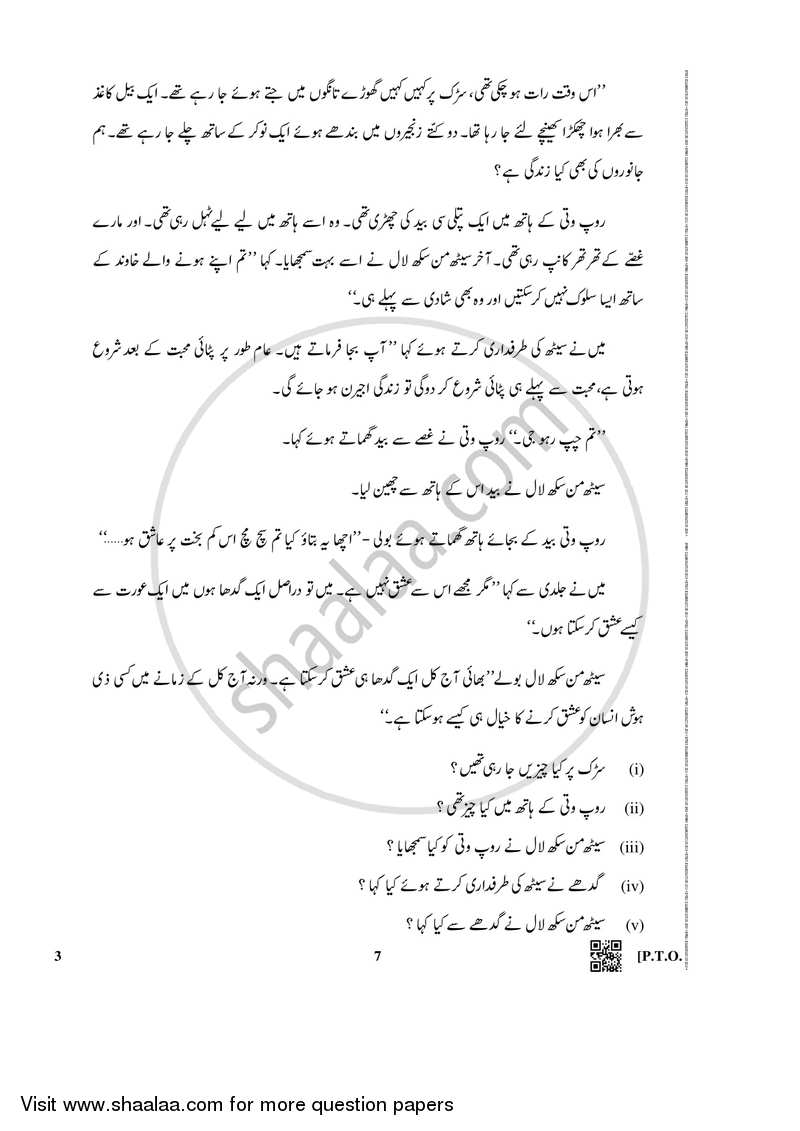 ’’اس وقت رات ہو چکی تھی، سڑک پر کہیں کہیں گھوڑے تانگوں میں جتے ہوئے جا رہے تھے۔ ایک بیل کاغذ
سے بھرا ہوا چھکڑا کھینچے لئے جا رہا تھا۔ دو کتے زنجیروں میں بندھے ہوئے ایک نوکر کے ساتھ چلے جا رہے تھے۔ ہم
جانوروں کی بھی کیا زندگی ہے؟
روپ وتی کے ہاتھ میں ایک پتلی سی بید کی چھڑی تھی۔ وہ اسے ہاتھ میں لیے لیے ٹہل رہی تھی۔ اور مارے
غصّے کے تھر تھر کانپ رہی تھی۔ آخر سیٹھ من سکھ لال نے اسے بہت سمجھایا۔ کہا ’’تم اپنے ہونے والے خاوند کے
ساتھ ایسا سلوک نہیں کرسکتیں اور وہ بھی شادی سے پہلے ہی۔‘‘
میں نے سیٹھ کی طرفداری کرتے ہوئے کہا ’’آپ بجا فرماتے ہیں۔ عام طور پر پٹائی محبت کے بعد شروع
ہوتی ہے، محبت سے پہلے ہی پٹائی شروع کر دوگی تو زندگی اجیرن ہو جائے گی۔
’’تم چپ رہو جی۔‘‘ روپ وتی نے غصے سے بید گھماتے ہوئے کہا۔
سیٹھ من سکھ لال نے بید اس کے ہاتھ سے چھین لیا۔
روپ وتی بید کے بجائے ہاتھ گھماتے ہوئے بولی -’’اچھا یہ بتاؤ کیا تم سچ مچ اس کم بخت پر عاشق ہو......‘‘
میں نے جلدی سے کہا ’’مگر مجھے اس سے عشق نہیں ہے۔ میں تو دراصل ایک گدھا ہوں میں ایک عورت سے
کیسے عشق کرسکتا ہوں۔‘‘
سیٹھ من سکھ لال بولے’’بھائی آج کل ایک گدھا ہی عشق کرسکتا ہے۔ ورنہ آج کل کے زمانے میں کسی ذی
ہوش انسان کو عشق کرنے کا خیال ہی کیسے ہوسکتا ہے۔‘‘
(i) سڑک پر کیا چیزیں جا رہی تھیں؟
(ii) روپ وتی کے ہاتھ میں کیا چیز تھی؟
(iii) سیٹھ من سکھ لال نے روپ وتی کو کیا سمجھایا؟
(iv) گدھے نے سیٹھ کی طرفداری کرتے ہوئے کیا کہا؟
(v) سیٹھ من سکھ لال نے گدھے سے کیا کہا؟
3 7 [P.T.O.
shaalaa.com
Visit www.shaalaa.com for more question papers